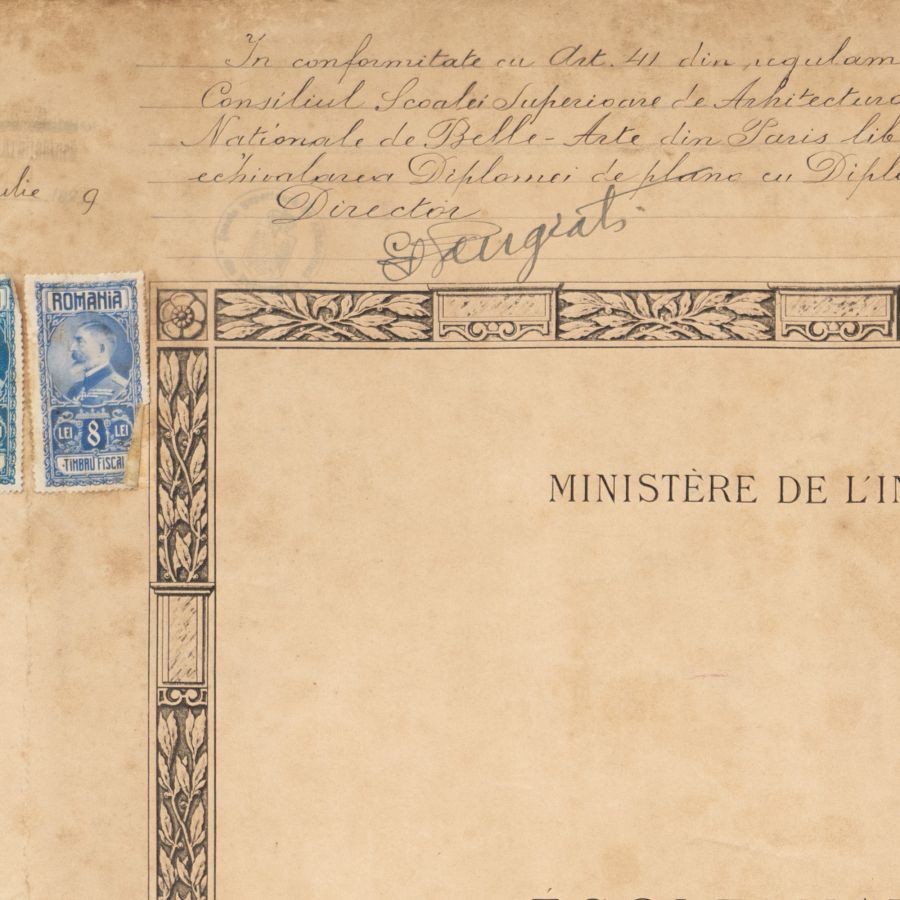 In conformitate cu Art. 41 din regulam
Consiliul Scoalei Superioare de Arhitectura
Naționale de Belle-Arte din Paris lib
echivalarea Diplomei de plano cu Diplo
Director
ulie 9
ROMANIA
LEI 8 LEI
TIMBRU FISCAL
MINISTÈRE DE L'IN